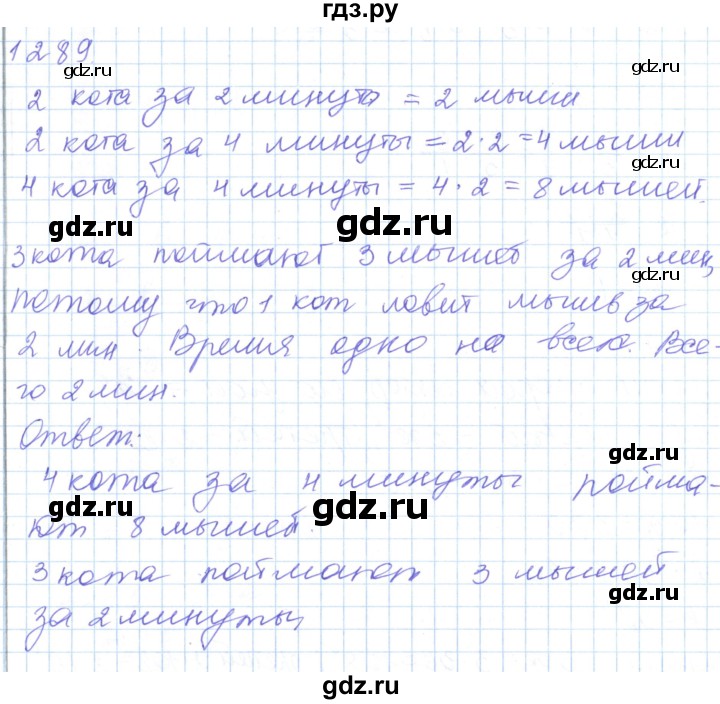 гдз.ру
1289
gdz.ru gdz.ru
2 кота за 2 минуты = 2 мыши
2 кота за 4 минуты = 2·2=4 мыши
gdz.ru gdz.ru
4 кота за 4 минуты = 4·2=8 мышей.
gdz.ru gdz.ru
3 кота поймают 3 мышей за 2 мин,
gdz.ru
потому что 1 кот ловит мышь за
2 мин. Время одно на всех. Все-
gdz.ru gdz.ru
го 2 мин.
Ответ:
gdz.ru
4 кота за 4 минуты пойма-
gdz.ru gdz.ru
ют 8 мышей.
3 кота поймают 3 мышей
gdz.ru gdz.ru
за 2 минуты
gdz.ru